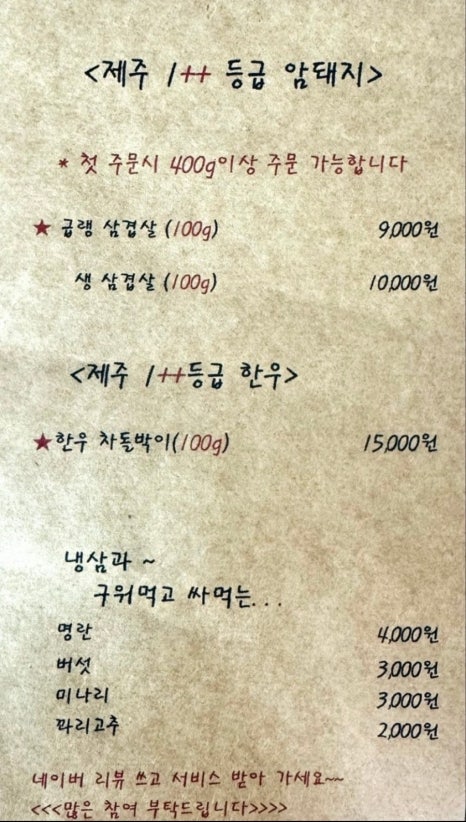 <제주 1++ 등급 암돼지>
* 첫 주문시 400g이상 주문 가능합니다
★ 급랭 삼겹살 (100g) 9,000원
생 삼겹살 (100g) 10,000원
<제주 1++등급 한우>
★한우 차돌박이(100g) 15,000원
냉삼과 ~
구워먹고 싸먹는...
명란 4,000원
버섯 3,000원
미나리 3,000원
꽈리고추 2,000원
네이버 리뷰 쓰고 서비스 받아 가세요~~
<<<많은 참여 부탁드립니다>>>>